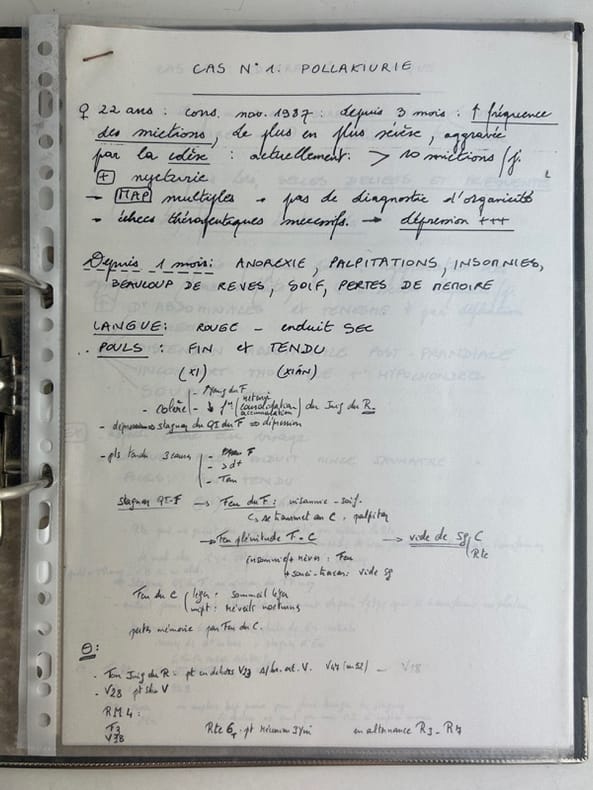 CAS N° 1: POLLAKIURIE
♀ 22 ans : cons. nov. 1987 : depuis 3 mois : ↑ fréquence
des mictions, de plus en plus sévère, aggravée
par la colère : actuellement. > 10 mictions / j.
+ nycturie
- MAP multiples + pas de diagnostic d'organicité
- échecs thérapeutiques successifs. → dépression +++
Depuis 1 mois: ANOREXIE, PALPITATIONS, INSOMNIES,
BEAUCOUP DE REVES, SOIF, PERTES DE MEMOIRE
LANGUE: ROUGE - enduit SEC
POULS : FIN et TENDU
(XI) (XIÁN)
- Yang du F
- colère - ↓ fn (consolidation) du Jing du R.
- dépression = stagnn du QI du F ⇒ dépression
- pls tendu 3 causes - F
- Tan
stagnan QI-F → Feu du F : insomnie - soif.
↳ se transmet au C. palpiton
→ Feu plénitude F-C → vide de Sg C
Rte
insomnie + rêves : Feu
vide sg
Feu du C léger : sommeil léger
réveils nocturnes
pertes mémoire par Feu du C.
⊖:
Jing du R : pt en dehors V23 V47 V18
- V28 pt shu V
RM4 :
F3
V18
Rte 6, pt réunion 3 yin en alternance R3 - R7